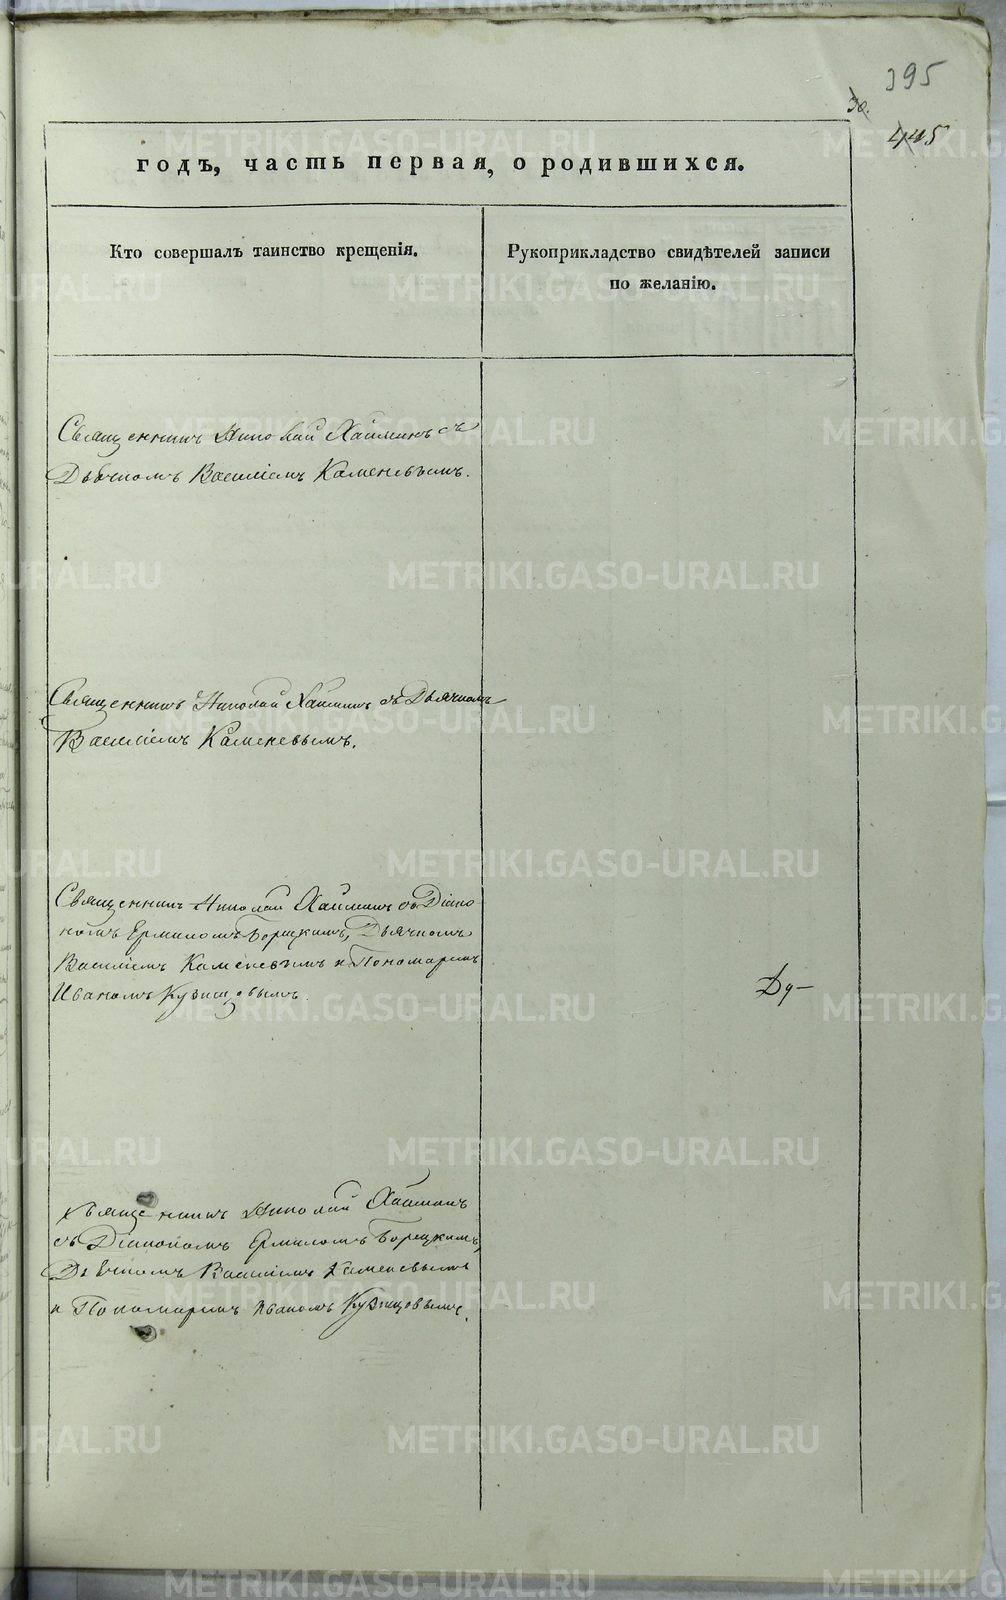 395
30.
445
годъ, часть первая, о родившихся.
Кто совершалъ таинство крещенія.
Рукоприкладство свидѣтелей записи
по желанію.
Священникъ Николай Хаминъ съ
Дьячкомъ Василіемъ Каменевымъ.
Священникъ Николай Хаминъ съ Дьячкомъ
Василіемъ Каменевымъ.
Священникъ Николай Хаминъ съ Діако
номъ Ермиломъ Борецкимъ, Дьячкомъ
Василіемъ Каменевымъ и Пономаремъ
Иваномъ Кузнецовымъ.
Священникъ Николай Хаминъ
съ Діакономъ Ермиломъ Борецкимъ,
Дьячкомъ Василіемъ Каменевымъ
и Пономаремъ Иваномъ Кузнецовымъ.
METRIKI.GASO-URAL.RU